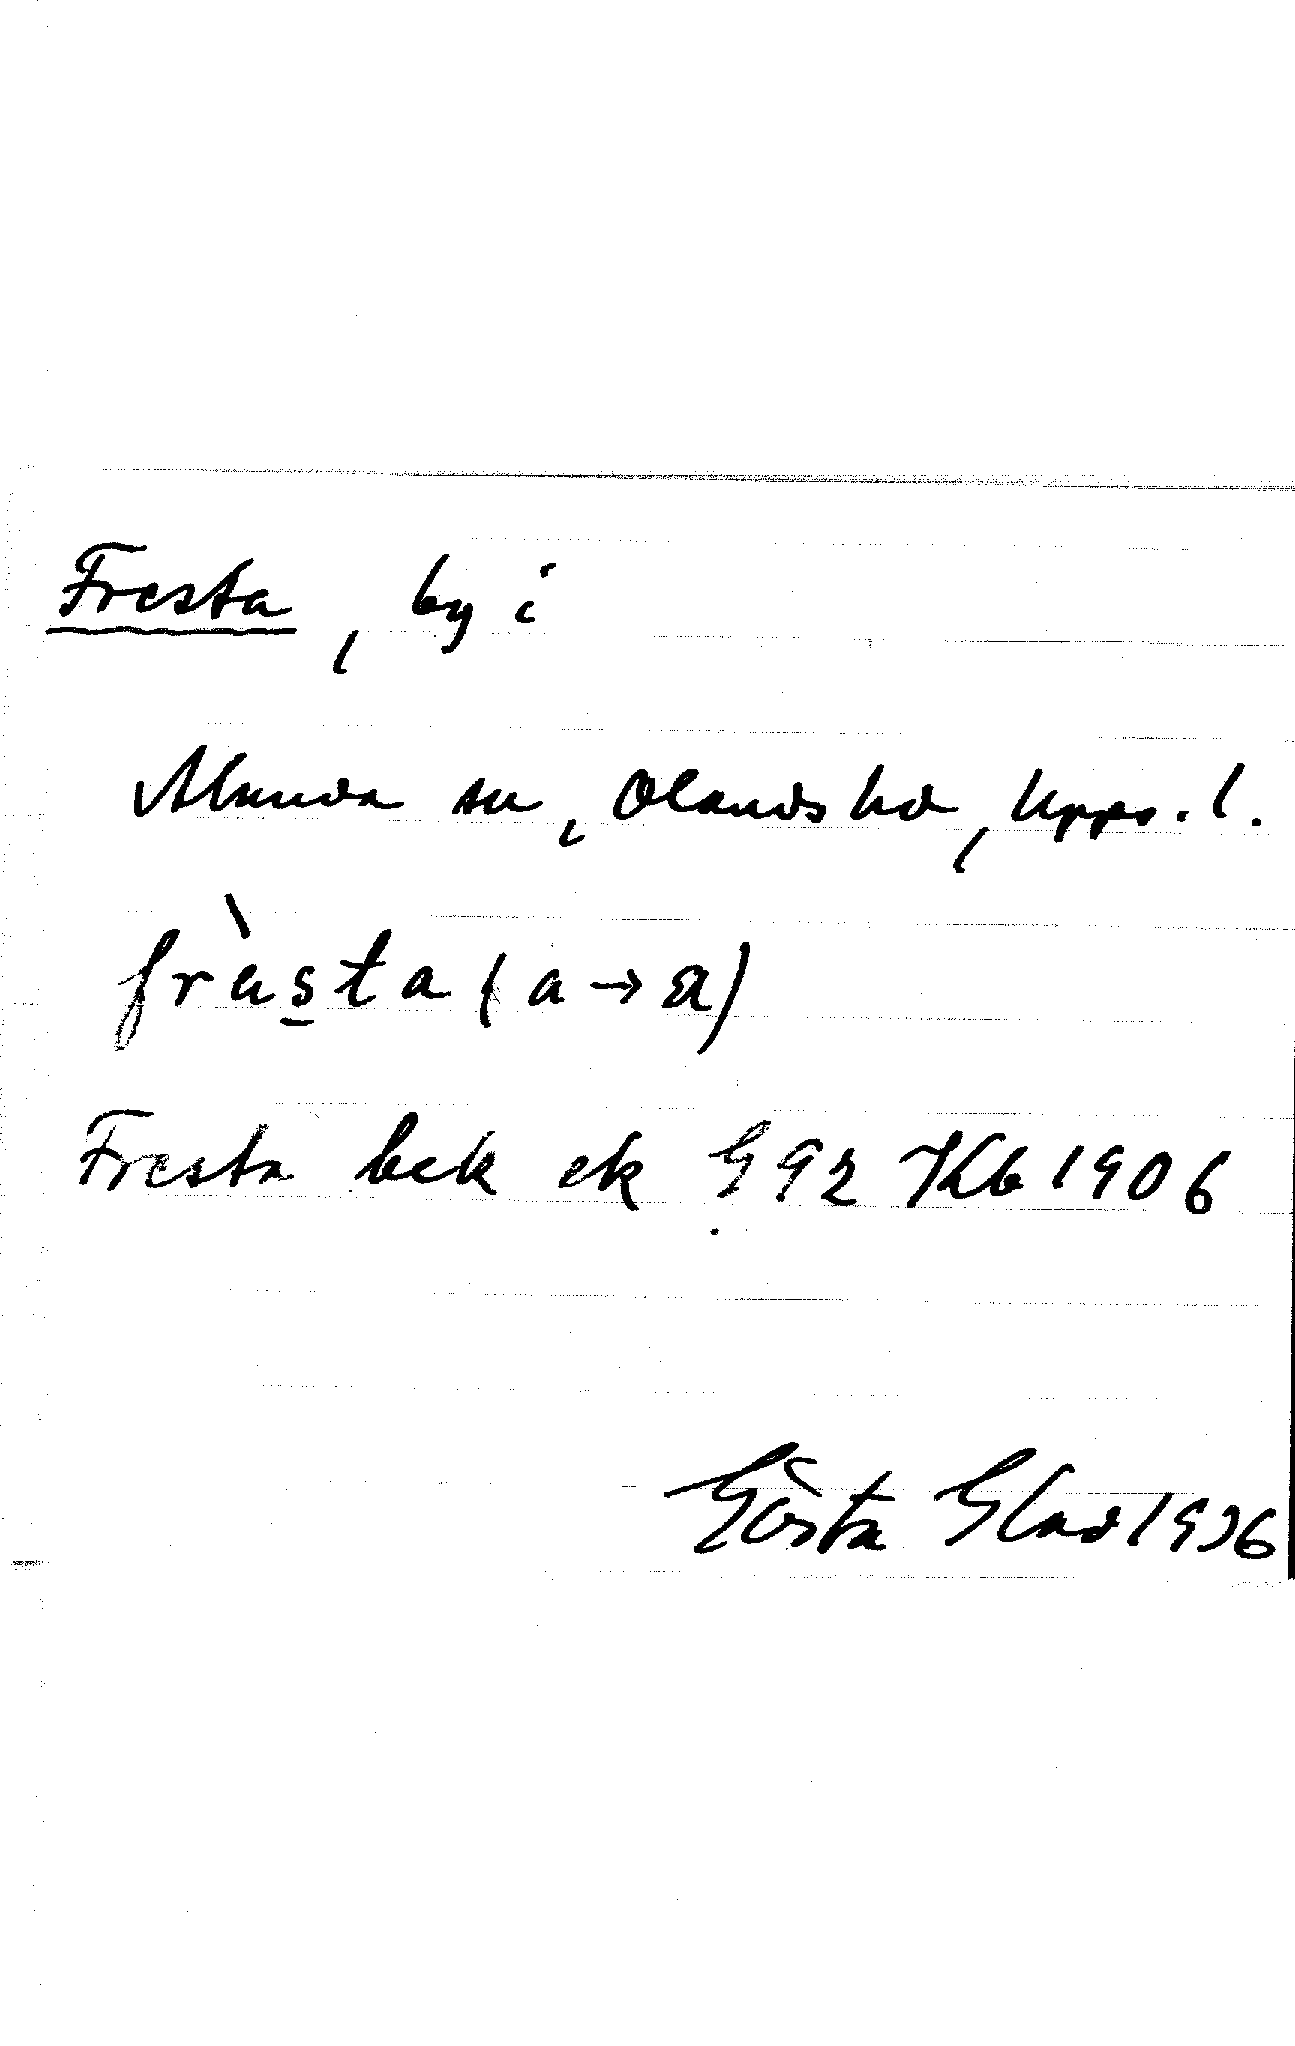 Fresta, by i
Alunda sn, Olands hd, Upps. l.
fràs̲ta (a → a)
Fresta bek ek G 92 Kb 1906
Gösta Glad 1936